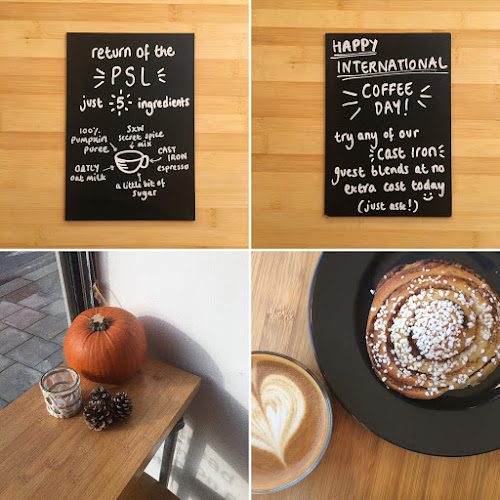 return of the
PSL
just 5 ingredients
100%
pumpkin
puree
SXW
secret spice
mix
CAST
IRON
espresso
OATLY
oat milk
a little bit of
sugar
HAPPY
INTERNATIONAL
COFFEE
DAY!
try any of our
Cast Iron
guest blends at no
extra cost today
(just ask!)